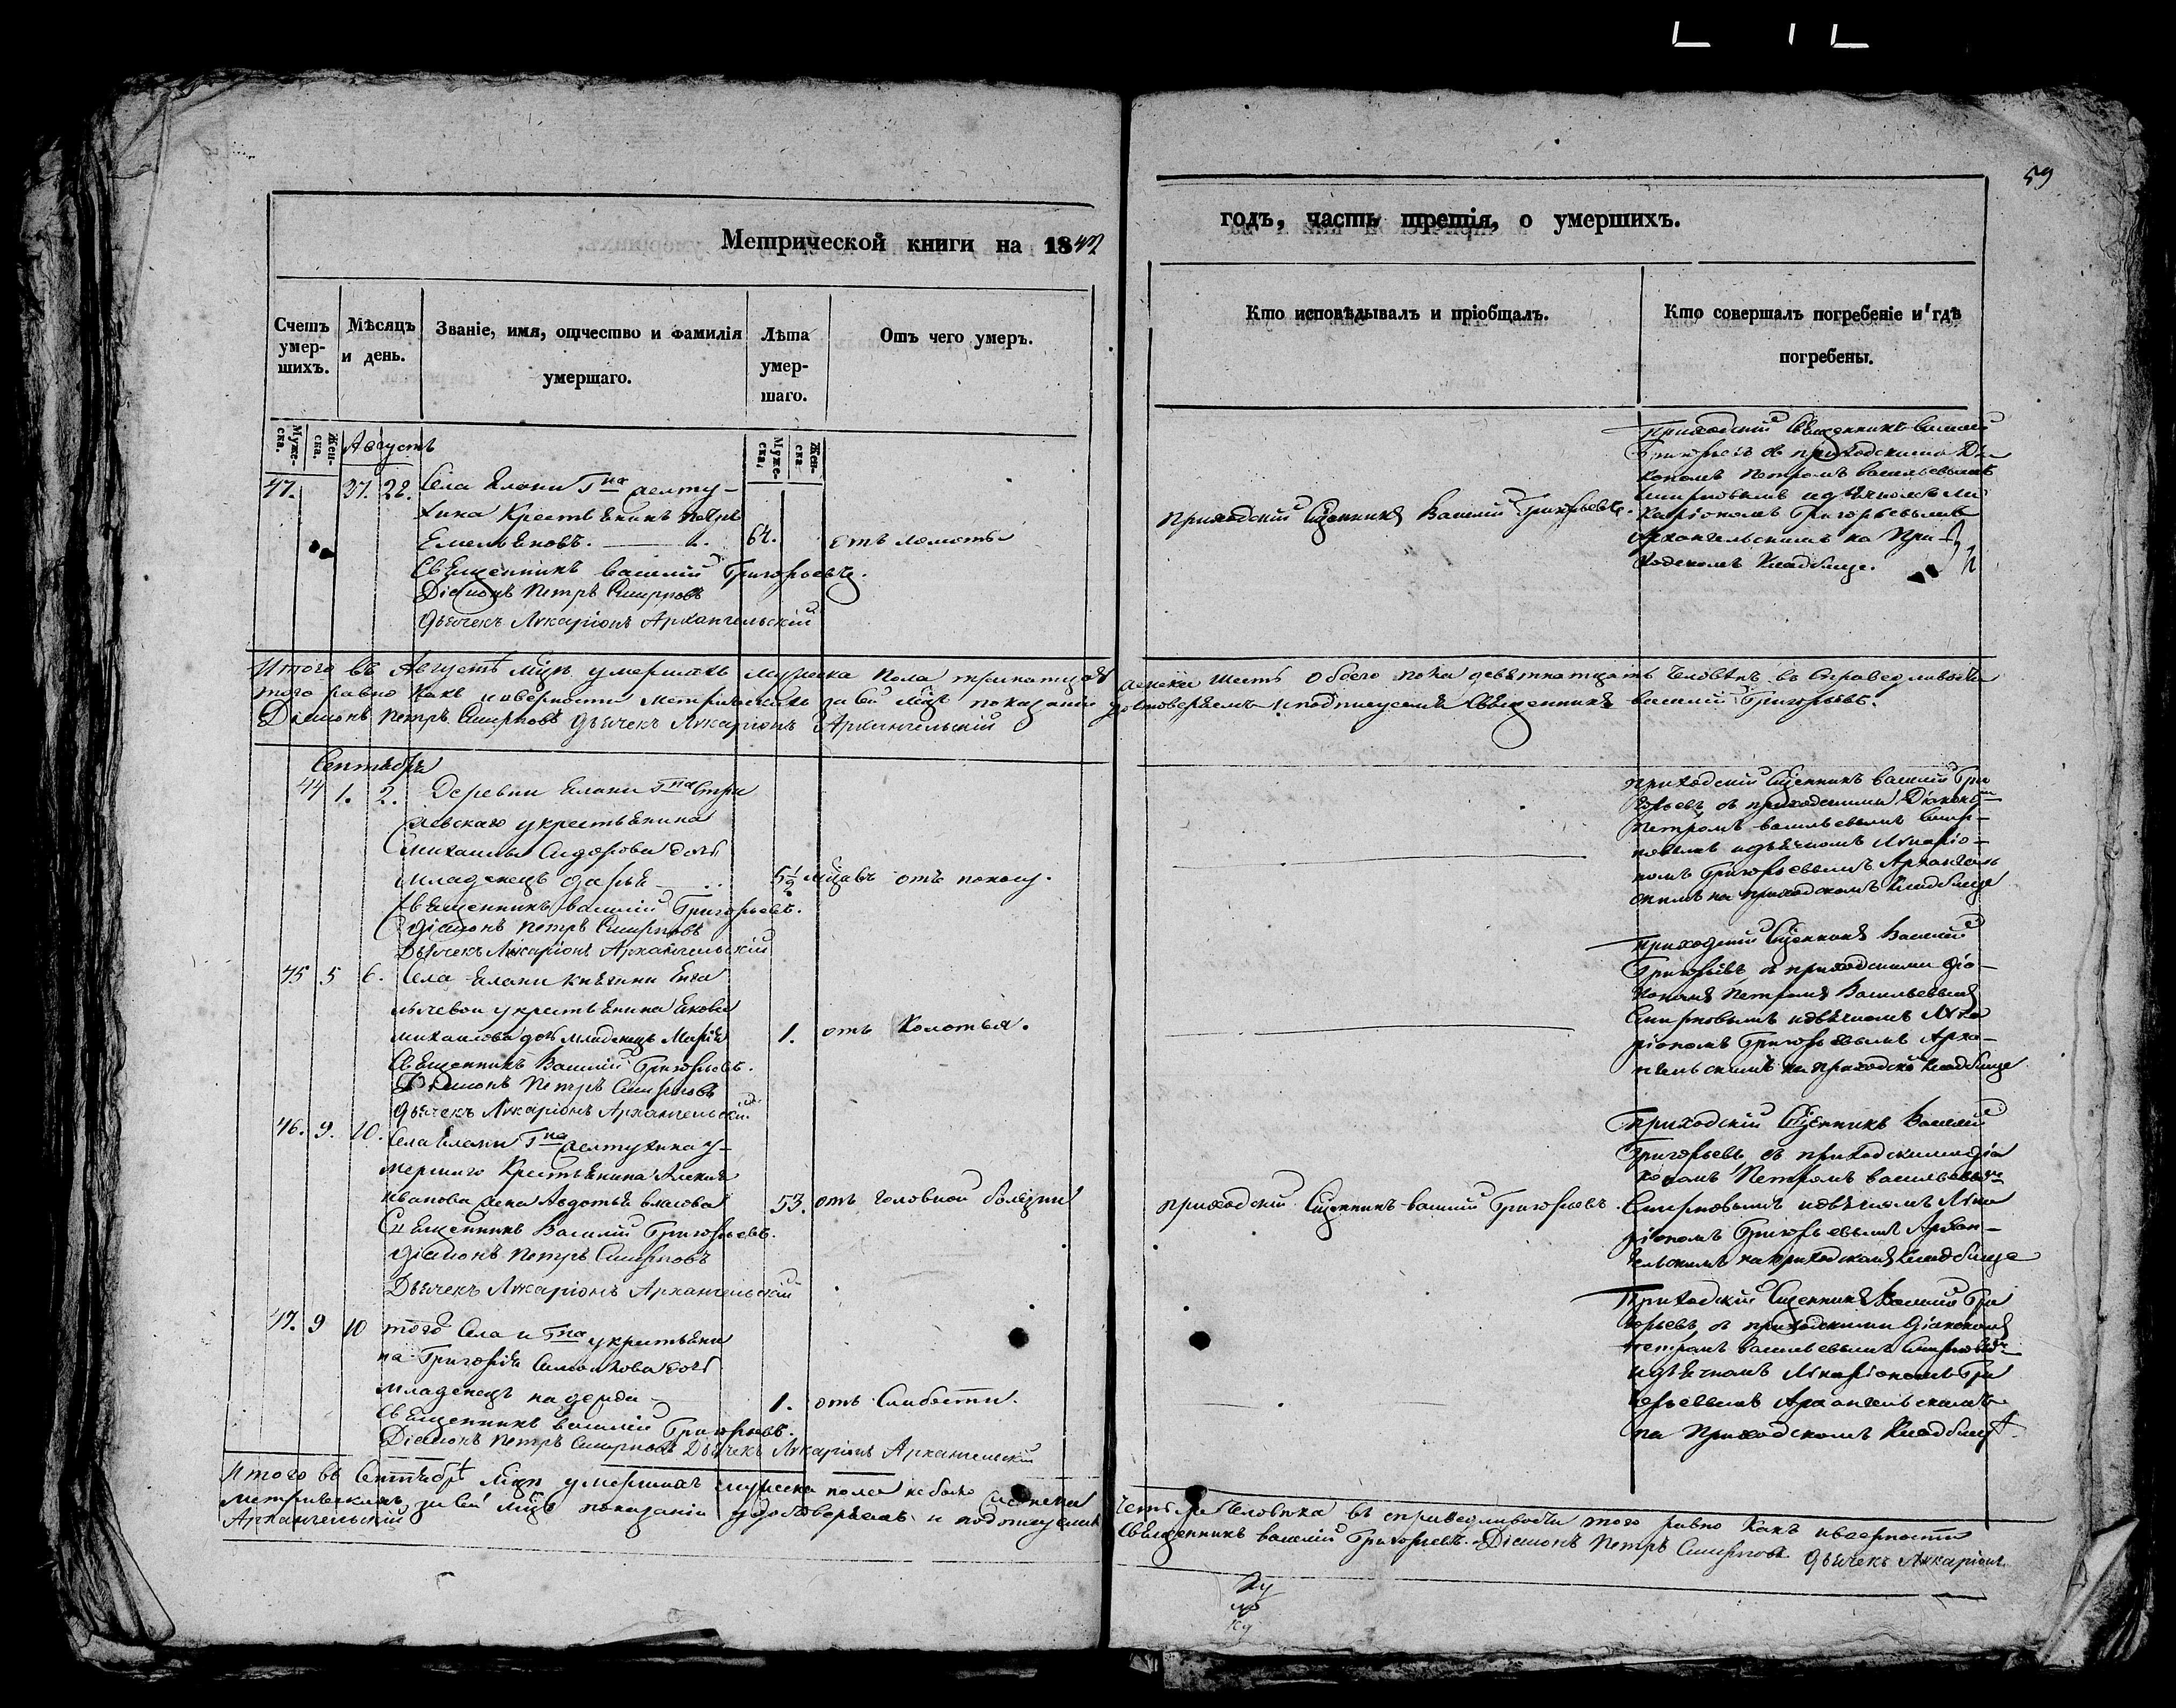 59
Метрической книги на 1847
годъ, часть третія, о умершихъ.
Счетъ умер-шихъ.
Мѣсяцъ и день.
Званіе, имя, отчество и фамилія умершаго.
Лѣта умер-шаго.
Отъ чего умеръ.
Кто исповѣдывалъ и пріобщалъ.
Кто совершалъ погребеніе и гдѣ погребены.
Муже-ска.
Жен-ска.
Муже-ска.
Жен-ска.
Августъ
47. 27. 28. Села Елани Гна
кина Крестьянинъ Петръ
Емельяновъ. 64. отъ ломоты
Священникъ Василий Григорьевъ.
Діаконъ Петръ Смирновъ
Дьячекъ Лукаріонъ Архангельскій
Приходскій Сщенникъ Василий Григорьевъ.
Приходский Священникъ Василий
Григорьевъ съ приходскими Діа
кономъ Петромъ Васильевымъ
Смирновымъ и дьячкомъ Лу
каріономъ Григорьевымъ
Архангельскимъ на При-
ходскомъ Кладбище.
Итого въ Августѣ Мцѣ умершихъ мужеска пола тринатцать
женска шесть обоего пола девятнатцать человѣкъ въ справедливости
того равно какъ и верности метрическихъ за сей Мцъ показаний
удостоверяемъ и подписуемся Священникъ Василий Григорьевъ.
Діаконъ Петръ Смирновъ Дьячекъ Лукаріонъ Архангельскій
Сентябрь
44 1. 2. Деревни Елани Гна Стри
жевскаго у крестьянина
Михаилы Сидорова дочь
младенецъ Дарья 5½ мцовъ отъ поносу.
Священникъ Василий Григорьевъ.
Діаконъ Петръ Смирновъ
Дьячекъ Лукаріонъ Архангельскій
Приходский Сщенникъ Василий Гри
горьевъ съ приходскими Діакономъ
Петромъ Васильевымъ Смир-
новымъ и дьячкомъ Лукаріо-
номъ Григорьевымъ Архангель
скимъ на приходскомъ Кладбище
45 5 6. Села Елани Княгини Енга
лычевои у крестьянина Якова
Михаилова дочь младенецъ Марія 1. отъ Колотья.
Священникъ Василий Григорьевъ.
Діаконъ Петръ Смирновъ
Дьячекъ Лукаріонъ Архангельскій
Приходский Сщенникъ Василий
Григорьевъ съ приходскими Діа-
кономъ Петромъ Васильевымъ
Смирновымъ и дьячкомъ Лука
ріономъ Григорьевымъ Арха-
нгельскимъ на приходско Кладбище
46. 9. 10. Села Елани Гна у-
мершаго Крестьянина Алексея
Иванова жена Авдотья Власова 53. отъ головной болезни
Священникъ Василий Григорьевъ.
Діаконъ Петръ Смирновъ
Дьячекъ Лукаріонъ Архангельскій
Приходский Сщенникъ Василий Григорьевъ.
Приходский Сщенникъ Василий
Григорьевъ съ приходскими Діа
кономъ Петромъ Васильевымъ
Смирновымъ и дьячкомъ Лука
ріономъ Григорьевымъ Архан-
гельскимъ на приходскомъ Кладбище
47. 9 10 того Села и Гна у крестьяни
на Григорія Самоилова дочь
младенецъ Надежда 1. отъ Слабости.
Священникъ Василий Григорьевъ.
Діаконъ Петръ Смирновъ Дьячекъ Лукаріонъ Архангельскій
Приходский Сщенникъ Василий Гри
горьевъ съ приходскими Діакономъ
Петромъ Васильевымъ Смирновымъ
и дьячкомъ Лукаріономъ Гри
горьевымъ Архангельскимъ
на Приходскомъ Кладбище
Итого въ Сентябрѣ Мцѣ умершихъ мужеска пола не было женска
четыре человѣка въ справедливости того равно какъ и верности
метрическихъ за сей Мцъ показаній удостоверяемъ и подписуемся
Священникъ Василий Григорьевъ. Діаконъ Петръ Смирновъ. Дьячекъ Лукаріонъ
Архангельскій